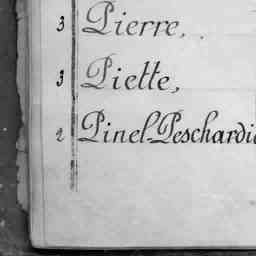 3 Pierre,
3 Piette,
2 Pinel-Peschardi